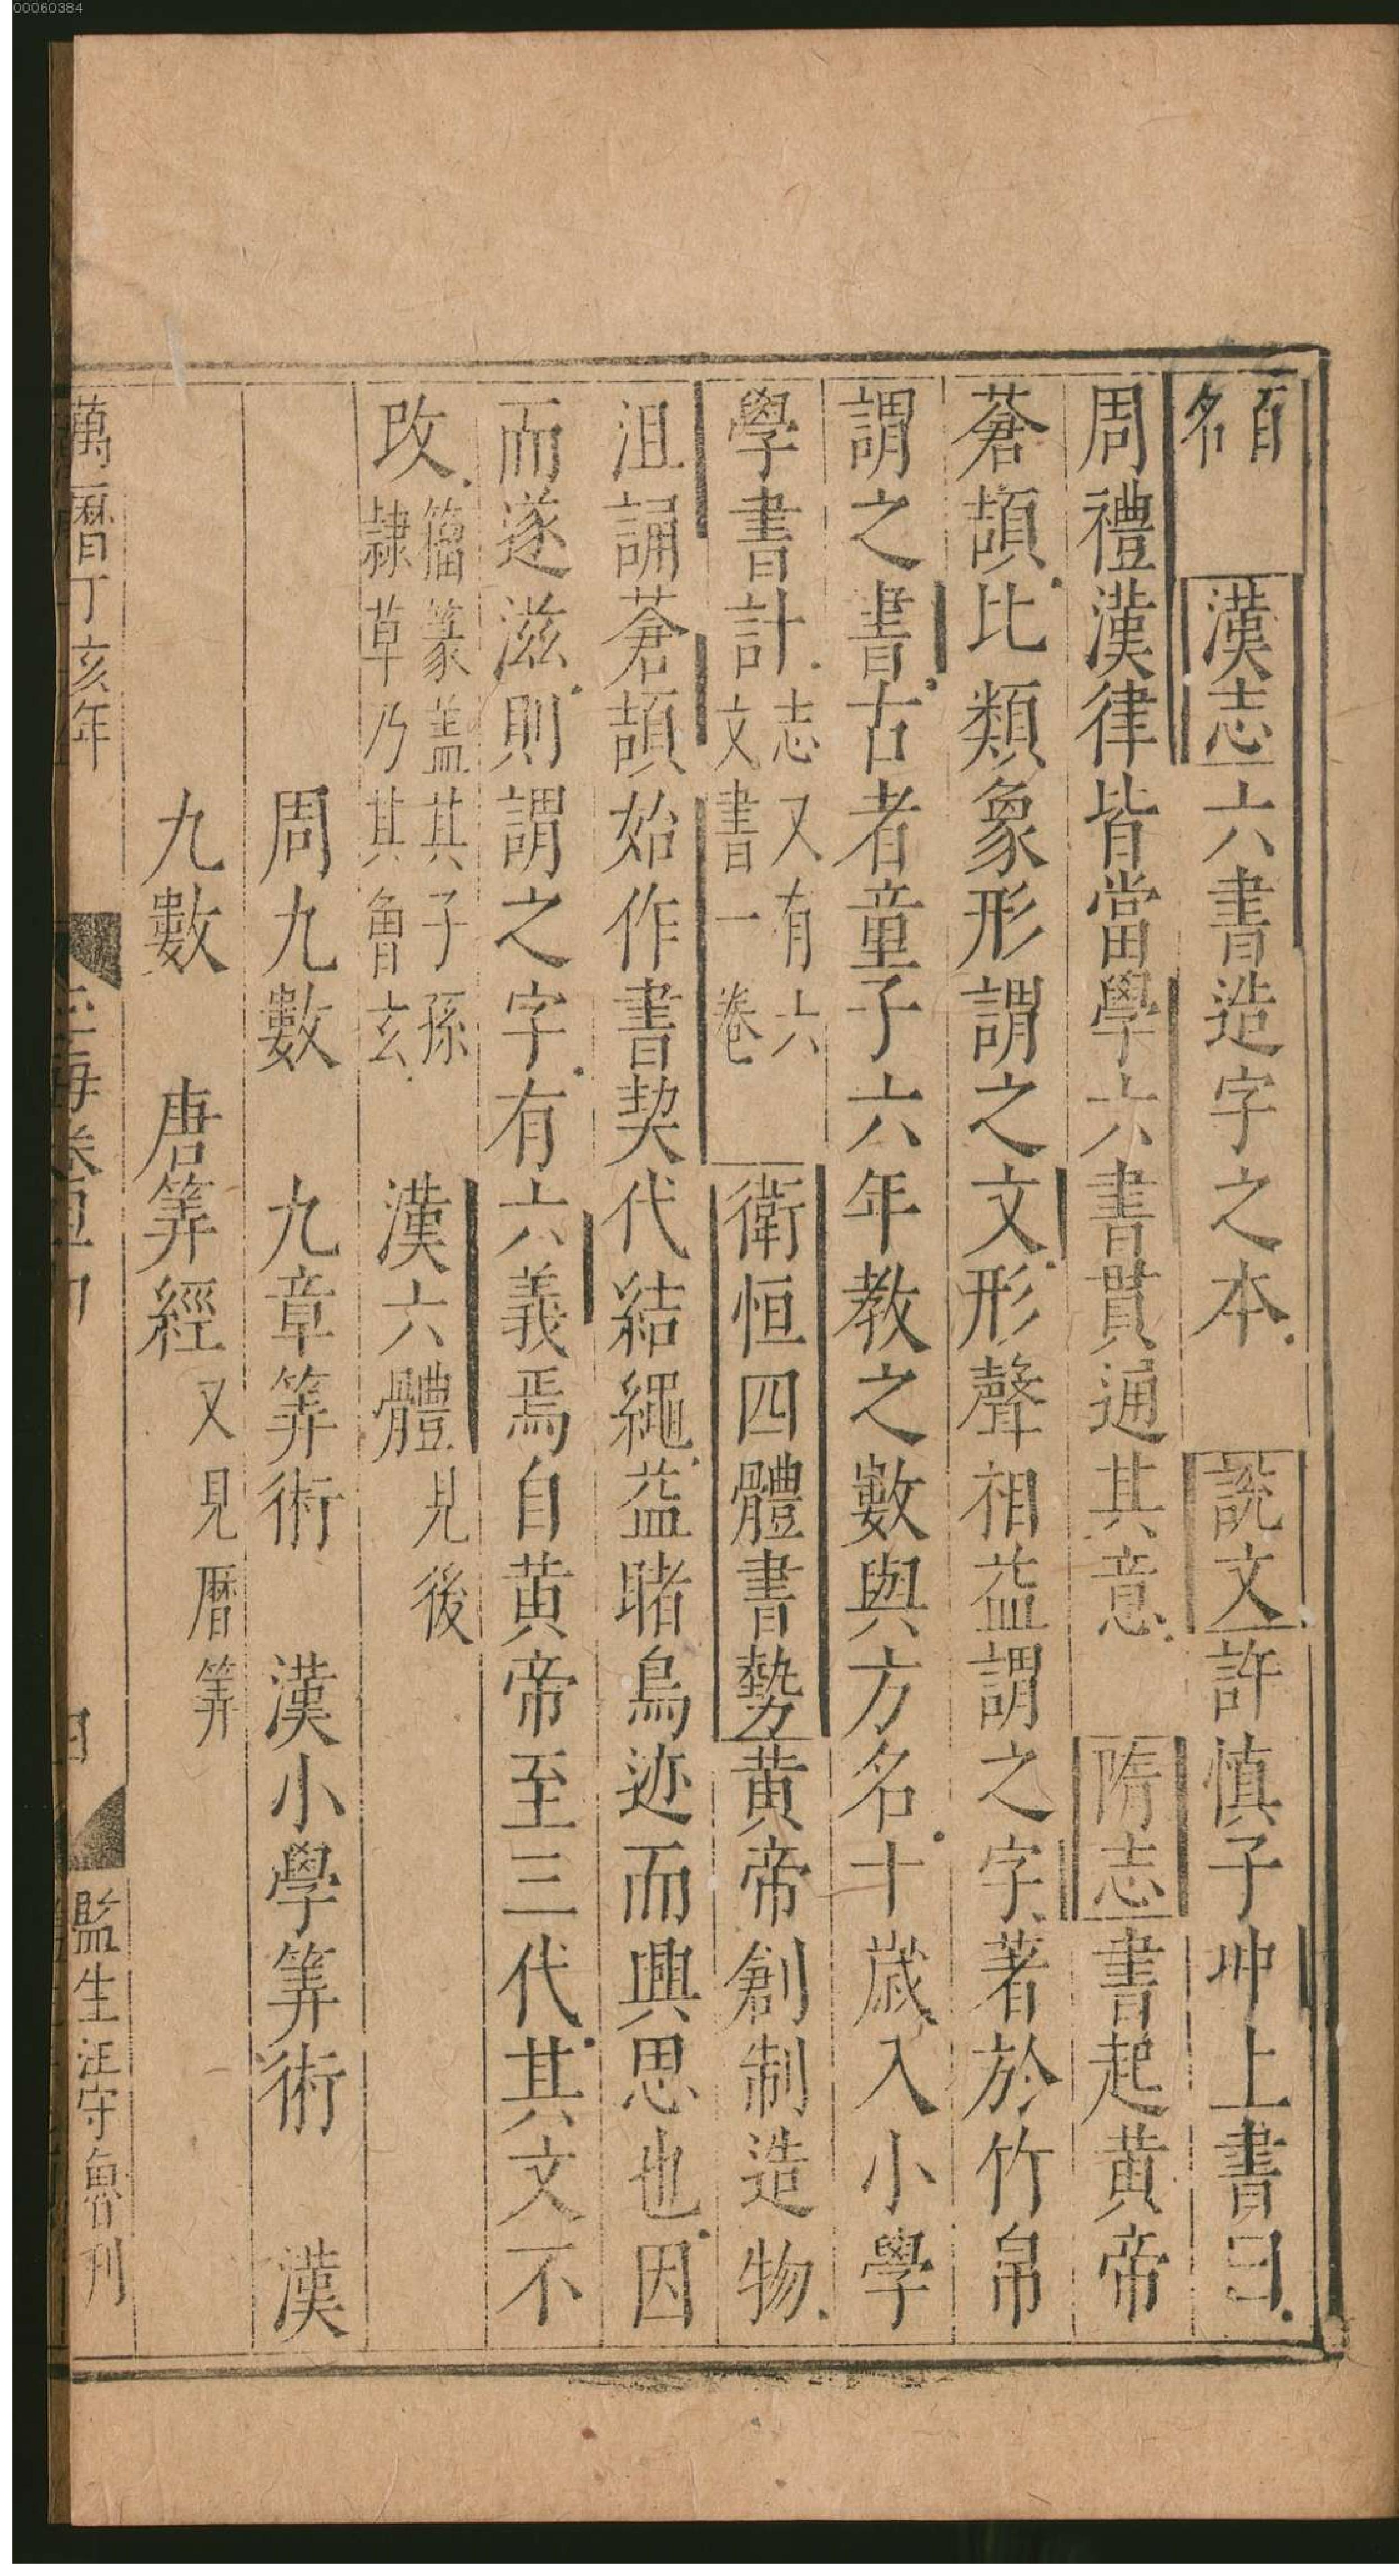 00060384
百名 漢志六書造字之本 說文許慎子冲上書曰
周禮漢律皆當學六書貫通其意 隋志書起黃帝
蒼頡比類象形謂之文形聲相益謂之字著於竹帛
謂之書古者童子六年教之數與方名十歲入小學
學書計志又有六文書一卷 衛恒四體書勢黃帝創制造物
沮誦蒼頡始作書契代結繩益睹鳥迹而興思也因
而遂滋則謂之字有六義焉自黃帝至三代其文不
改籀篆盖其子孫隸草乃其曾玄 漢六體見後
周九數 九章筭術 漢小學筭術 漢
九數 唐筭經又見曆筭
萬曆丁亥年 玉海卷 監生汪守魯刊